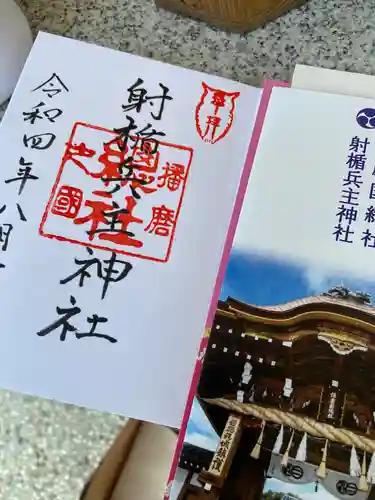 奉拝
射楯兵主神社
播磨
令和四年八月
国総社
射楯兵主神社